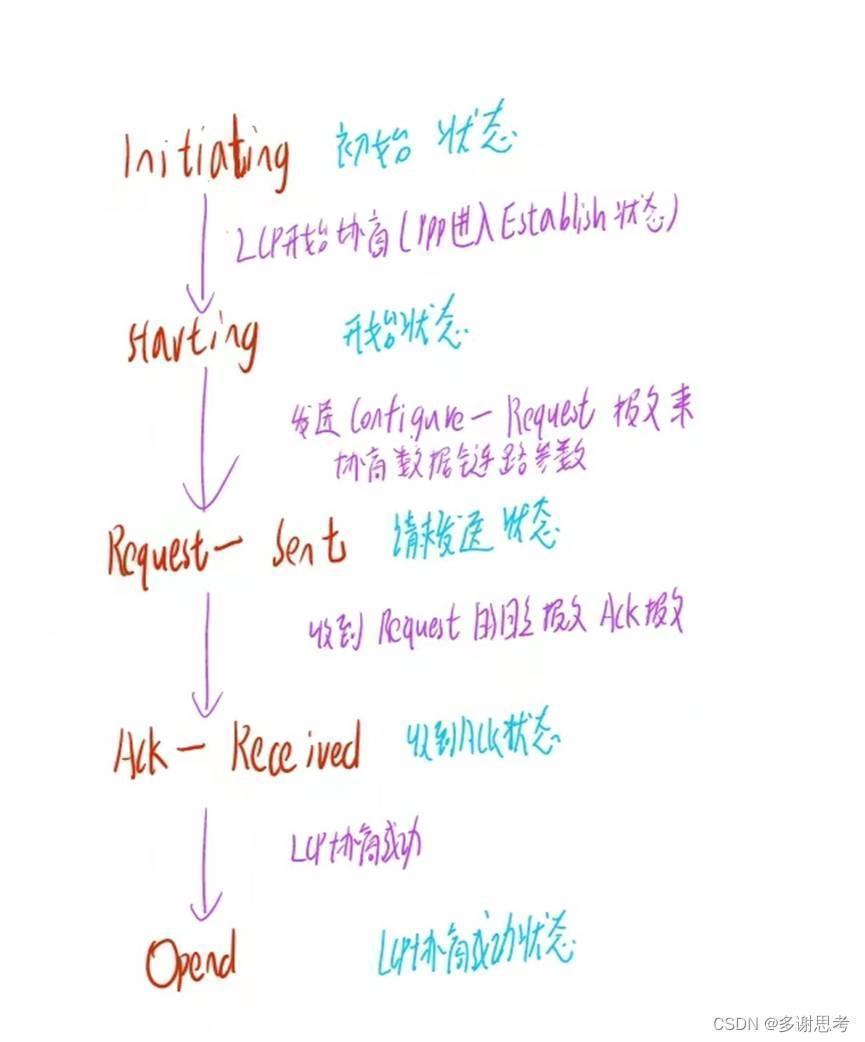 Initiating 初始 状态
LCP开始协商(ppp进入Establish状态)
Starting 开始状态
发送Configure-Request 报文来
协商数据链路参数
Request- Sent 请求发送 状态
收到 Request 的回应报文 Ack报文
Ack- Received 收到Ack状态
LCP协商成功
Opend LCP协商成功状态
CSDN @多谢思考